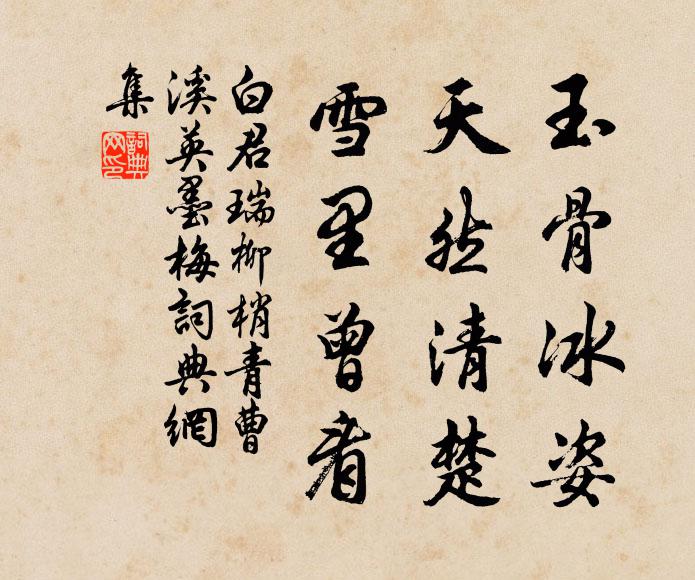 玉骨冰姿
天然清楚
雪里曾看
白君瑞柳梢青曹
溪英墨梅詞典網
集
詞典
网印